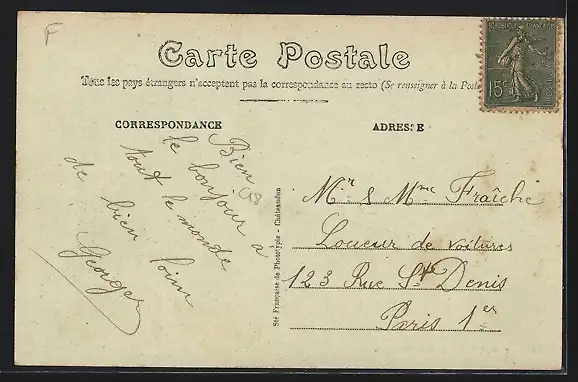 F
Carte Postale
Tous les pays étrangers n'acceptent pas la correspondance au recto (Se renseigner à la Poste
15c
CORRESPONDANCE
ADRESSE
Bien
le bonjour a
tout le monde
de bien loin
Georges
Sté Française de Phototypie - Châteaudun
Mr & Mme Fraîché
Loueur de voitures
123 Rue St Denis
Paris 1er